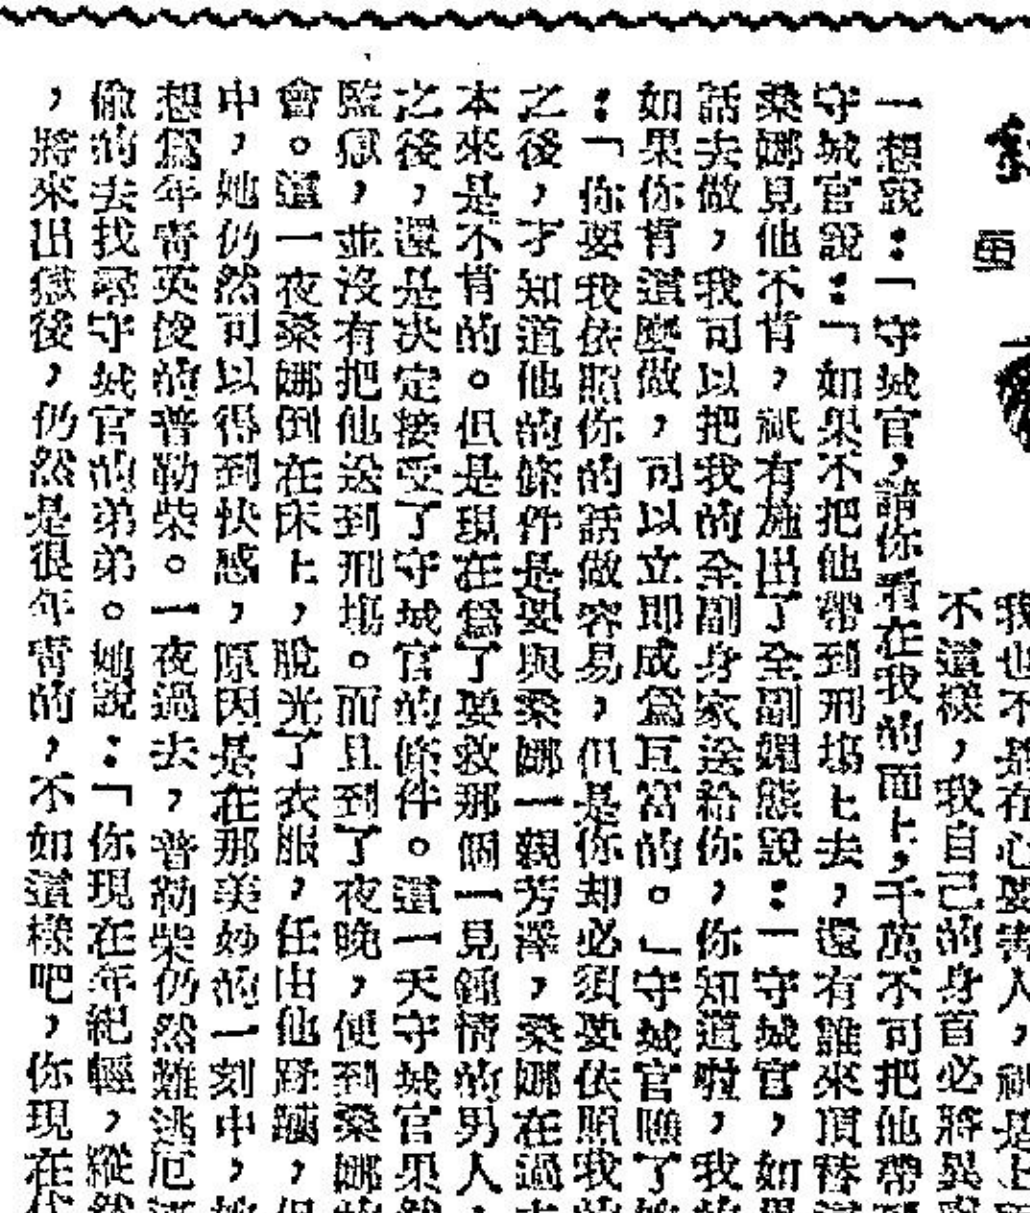 我也不是存心要害人，祇是上
不這樣，我自己的身首必將異
一想說：「守城官，請你看在我的面上，千萬不可把他帶到
守城官說：「如果不把他帶到刑場上去，還有誰來頂替
桑娜見他不肯，祇有施出了全副媚態說：「守城官，如果
話去做，我可以把我的全副身家送給你，你知道啦，我的
如果你肯這麼做，可以立即成為巨富的。」守城官瞧了她
：「你要我依照你的話做容易，但是你却必須要依照我的
之後，才知道他的條件是要與桑娜一親芳澤，桑娜在過去
本來是不肯的。但是現在為了要救那個一見鍾情的男人，
之後，還是決定接受了守城官的條件。這一天守城官果然
監獄，並沒有把他送到刑場。而且到了夜晚，便到桑娜的
會。這一夜桑娜倒在床上，脫光了衣服，任由他蹂躪，但
中，她仍然可以得到快感，原因是在那美妙的一刻中，她
想為年青英俊的普勒柴。一夜過去，普勒柴仍然難逃厄運
偷的去找尋守城官的弟弟。她說：「你現在年紀輕，縱然
，將來出獄後，仍然是很年青的，不如這樣吧，你現在代